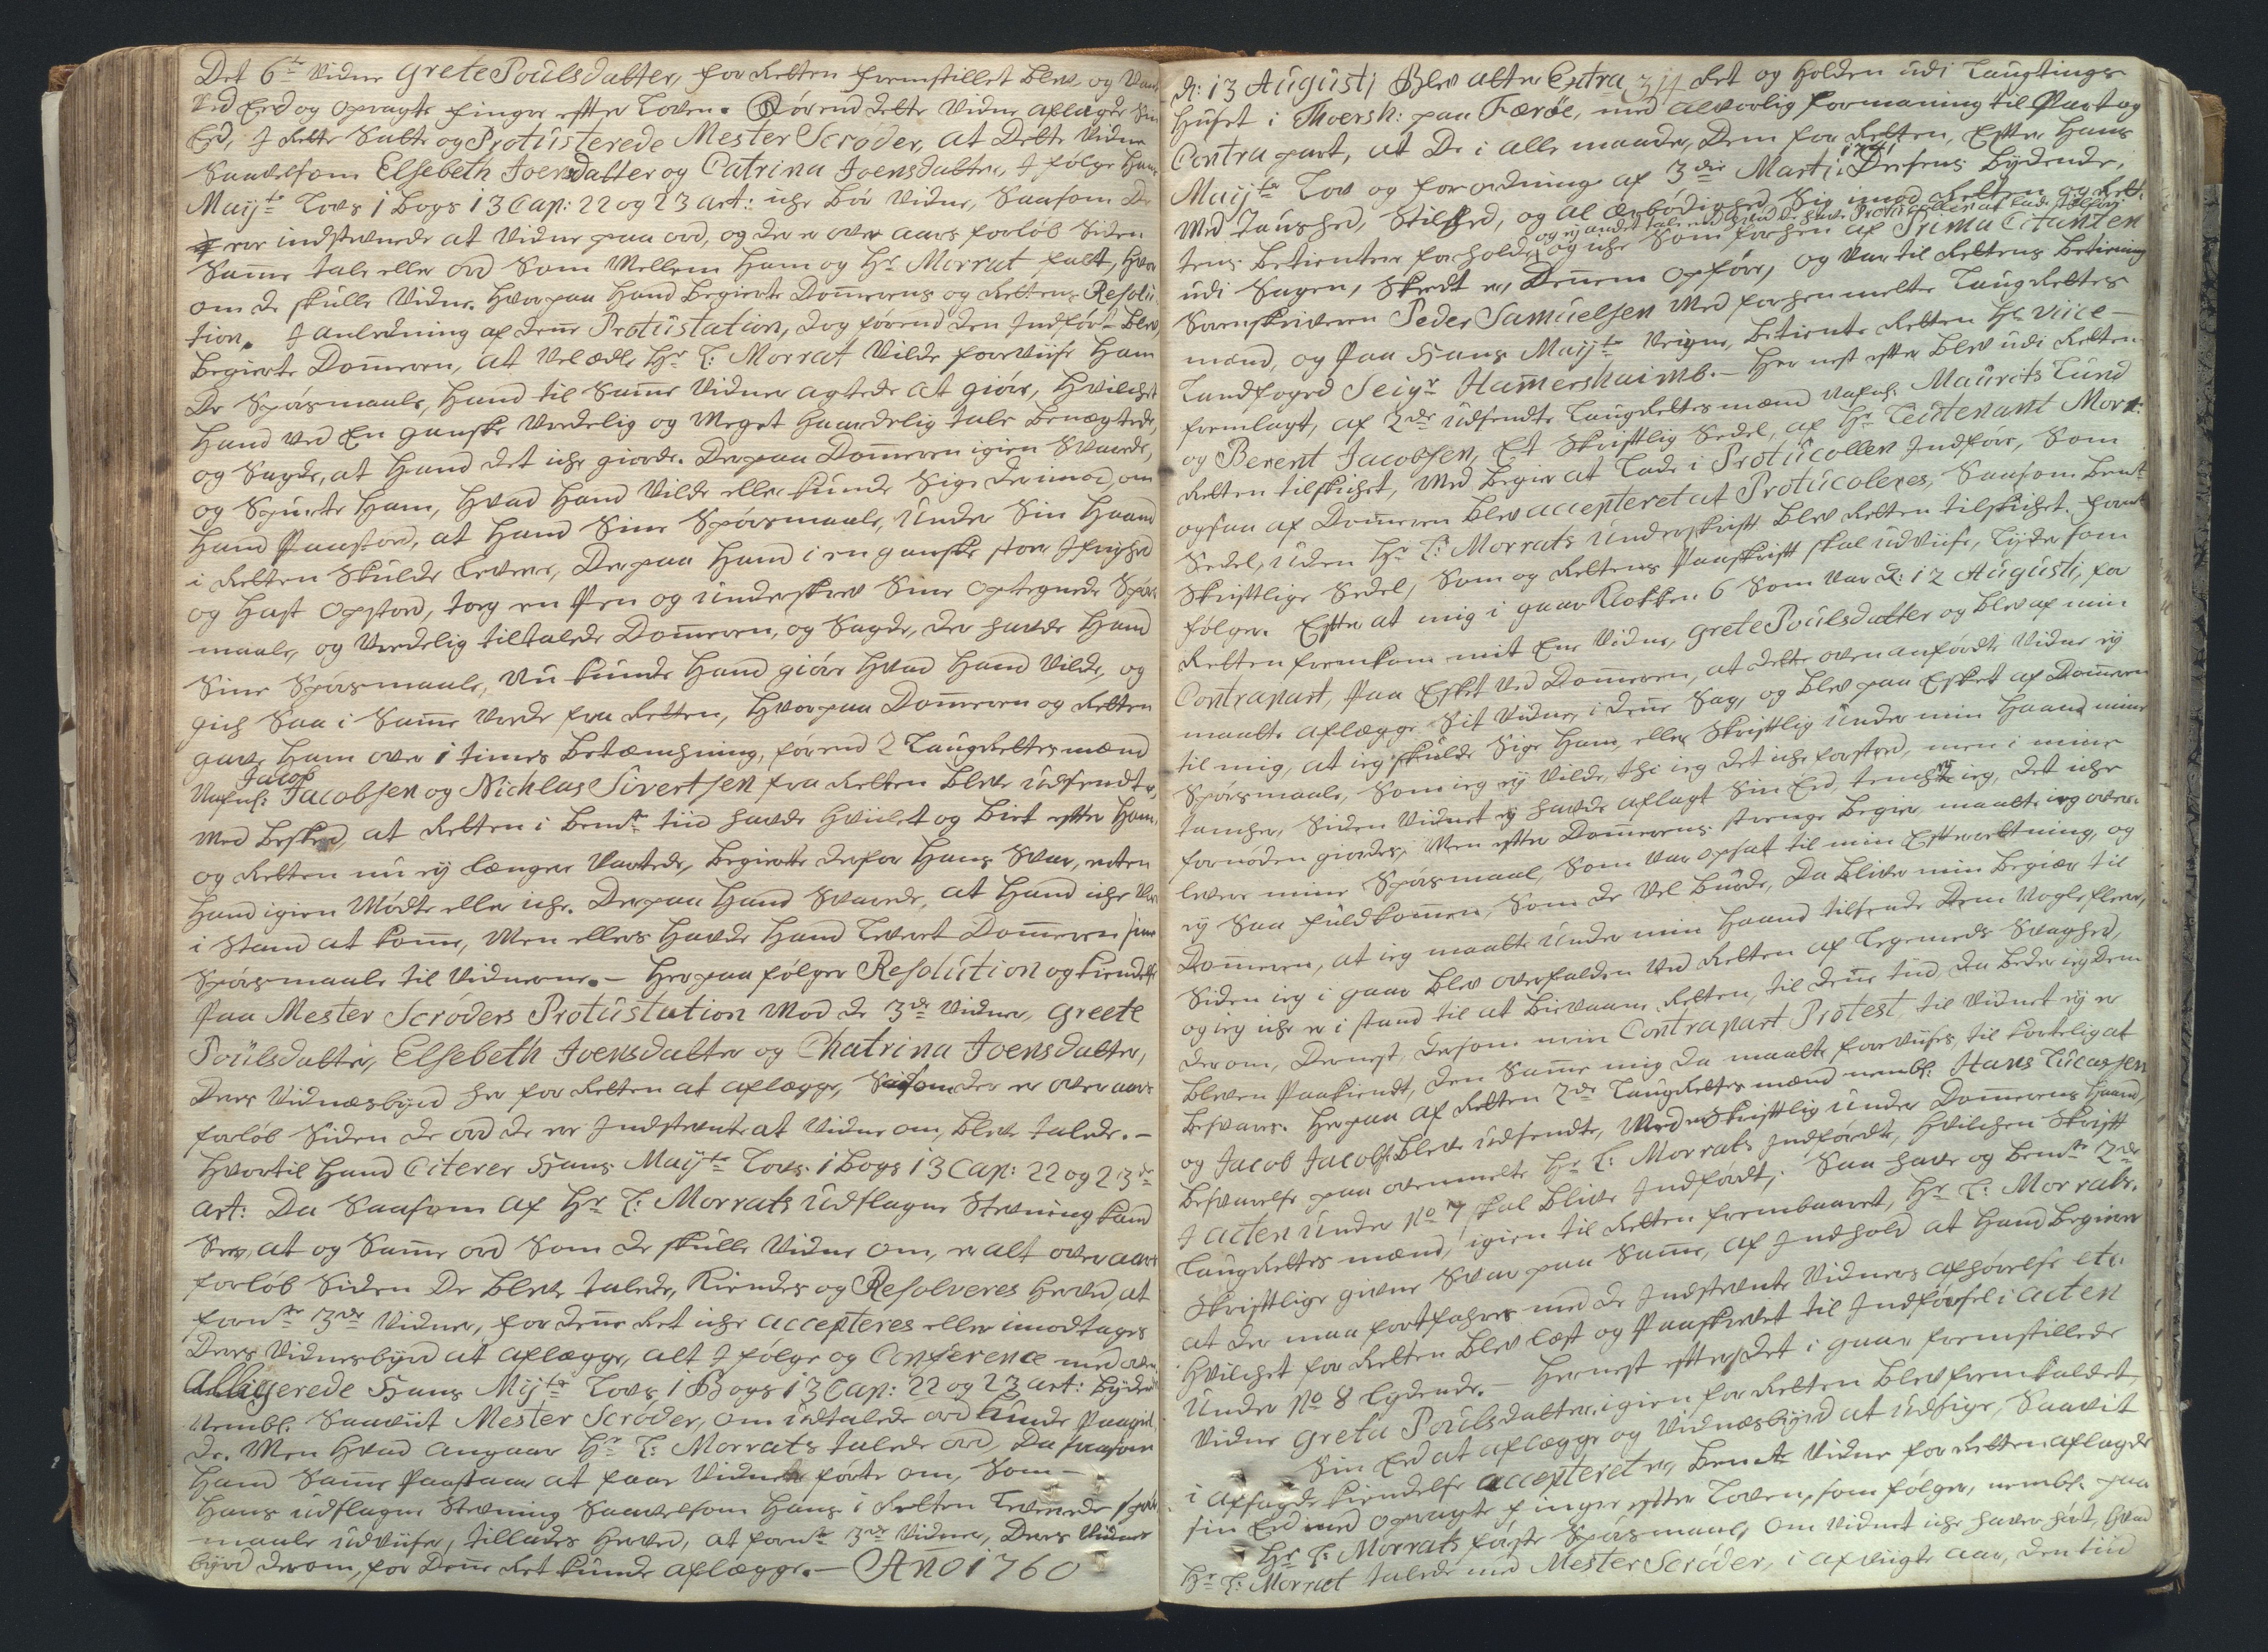 Det 6te Vidne Grete Poulsdatter, for Retten fremstillet blev, og Vandt
Ved Eed og opragte finger efter Loven. Førend dette Vidne aflagde Sin
Eed, I Rette Satte og Protûsterede Mester Scröder, at dette Vidne
Saavelsom Elsebeth Joensdatter og Catrina Joensdatter, I følge Hans
Maijts Lovs 1 Bogs 13 Cap: 22 og 23 art: iche bør Vidne, Saasom De
er indstevnede at Vidne paa ord, og der er over aars forløb Siden
Samme tale eller ord Som Mellem Ham og Hr Morrat falt, hvor
om de skulle Vidne. Hvorpaa Hand begierte Dommerens og Rettens Resolu
tion. I anledning af denne Protûstation, dog førend den Indført blev,
begierte Dommeren, at Velædle Hr L: Morrat Vilde foreviise Ham
De Spørsmaale, Hand til Samme Vidner agtede at giøre, Hvilchet
Hand Ved En ganske Vredelig og Meget haardelig tale benægtede,
og Sagde, at Hand det iche giorde. Derpaa Dommeren igien Svarede,
og Spurte Ham, Hvad Hand Vilde eller kunde Sige derimod, om
Hand Paastod, at Hand Sine Spørsmaale, Under Sin Haand
i Retten Skulde levere, Derpaa Hand i en ganske stor Ifrighed
og Hast opstod, tog en Pen og Underskrev Sine optegnede Spørs
maale, og Vredelig tiltalede Dommeren, og Sagde, der havde Hand
Sine Spørsmaale, Nu kunde Hand giøre Hvad Hand Vilde, og
gich Saa i Samme Vrede fra Retten, Hvorpaa Dommeren og Retten
gave Ham over 1 times betænchning, førend 2 Laugrettesmænd
Jacob
Nafnl: Jacobsen og Nichlas Sivertsen fra Retten bleve Udsendte,
Med besked, at Retten i bemte tiid havde Hviilet og biet efter Ham,
og Retten nu ej længere Vartede, begierte derfor Hans Svar, enten
Hand igien Mødte eller iche. Derpaa Hand Svarede, at Hand iche Var
i Stand at komme, Men ellers Havde Hand Levert Dommeren sine
Spørsmaale til Vidnerne. – Herpaa følger Resolution og kiendelse
Paa Mester Scröders Protûstation Mod de 3de Vidner, Greete
Poûlsdatter, Elsebeth Joensdatter og Chatrina Joensdatter,
Deres Vidnesbyrd her for Retten at aflægge, Saasom der er over aars
forløb Siden de ord de er Indstevnte at Vidne om, blev talede. –
Hvortil Hand Citerer Hans Maijts Lovs 1 Bogs 13 Cap: 22 og 23de
art: Da Saasom af Hr L: Morrats Udstagne Stevning kand
Sees, at og Samme ord Som de skulle Vidne om, er alt over aars
forløb Siden De blev talede, Kiendes og Resolveres Herved, at
formte 3de Vidner, for denne Ret iche accepteres eller imodtages
Deres Vidnesbyrd at aflægge, alt I følge og Conference med oven
Alligerede Hans Mijts Lovs 1 Bogs 13 Cap: 22 og 23 art: bydende
Nembl: Saaviit Mester Scröder, om Udtalede ord kunde Paagiel
de. Men Hvad angaar Hr L: Morrats talede ord, Da saasom
Hand Samme Paastaar at faae Vidner førte om, Som –
Hans Udstagne Stevning Saavelsom Hans i Retten Leverede spørs
maale Udviiser, tillades Herved, at formte 3de Vidner, Deres Vidnes
byrd derom, for Denne Ret kunde aflægge. – ANO 1760
314
d: 13 Augusti Blev atter Extra Ret og holden udi Laugtings
Huset i Thorsh: paa Færöe, med alvorlig formaning til Part og
Contrapart, at De i alle maader, dem for Retten, Efter Hans
1741
Maijts Lov og forordning af 3die Marti: Dessens bydende,
Med taushed, Stilhed, og al ærbødighed Sig imod Retten og Ret-
og ej andet tale end hvad de have Protucollen at lade tilføre
tens betientere forholde, og iche Som forhen af Prima Citanten
udi Sagen, Skeedt er, Dennem opføre, og Var til Rettens betiening
Sorenskriveren Peder Samuelsen Med forhenmelte Laugrettes
mænd, og Paa Hans Maijts Veigne, betiente Retten Hr Viice –
Landfoged Seigr Hamershaimb. – Her nest efter blev udi Retten
fremlagt, af 2de Udsendte Laugrettesmænd Nafnl: Maurits Lund
og Berent Jacobsen, Et Skriftlig Sedel, af Hr Leutenant Mor:
Retten tilskichet, Med begier at lade i Protucollen Indføre, Som
ogsaa af Dommeren blev accepteret at Protucoleres, Saasom bemte
Sedel, Uden Hr L: Morrats Underskrift blev Retten tilskichet. formte
Skriftlige Sedel, Som og Rettens Paaskrift skal udviise, Lyder som
følger. Efter at mig i gaar Klokken 6 Som var d: 12 Augusti, for
Retten fremkom mit Ene Vidne, Grete Poulsdatter og blev af min
Contrapart, Paa Esket Ved Dommeren, at dette ovenanførdte Vidne ej
maatte aflægge Sit Vidne i denne Sag, og blev paa Esket af Dommeren
til mig, at ieg skulde Sige Ham eller Skriftlig Under min Haand mine
Spørsmaale, Som ieg ej Vilde, thi ieg det iche forstod, men i mine
tancher, Siden Vidnet ej havde aflagt Sin Eed, tenchte ieg, det iche
fornøden giordes, Men efter Dommerens strenge begier maatte ieg over-
levere mine Spørsmaal, Som var opsat til min Efterretning, og
ej Saa fuldkommen, Som de Vel burde, Da bliver min begier til
Dommeren, at ieg maatte Under min Haand tilsende Dem Nogle flere,
Siden ieg i gaar blev overfalden Ved Retten af Legemeds Svaghed,
og ieg iche er i stand til at biivaane Retten, til denne tiid, da beder ieg dem
derom, Dernest, dersom min Contrapart Protest, til Vidnet ej er
bleven Paakiendt, den Samme mig da maatte foreviises, til kortelig at
besvare. Herpaa af Retten 2de Laugrettesmænd nembl: Hans Lucassen
og Jacob Jacobs: bleve Udsendte, Med Skriftlig Under Dommerens Haand,
besvarelse paa ovenmelte Hr L: Morrats Indførdte, Hvilchen Skrift
I acten Under No 7 skal blive Indførdt; Saa have og bemte 2de
Laugrettesmænd, igien til Retten frembaaret, Hr L: Morrats
Skriftlige givne Svar paa Samme, af Indhold at Hand begierer
at der maa fortfahres med de Indstevnte Vidners afhørelse etc.
Hvilchet for Retten blev læst og Paaskrevet til Indførsel i acten
Under No 8 Lydende. – Hernest efter det i gaar fremstillede
Vidne Greta Poulsdatter, igien for Retten blev fremkaldet,
Sin Eed at aflægge og Vidnesbyrd at udsige, Saavit
i afsagde kiendelse accepteret er, bemte Vidne for Retten aflagde
sin Eed med opragte finger efter Loven, som følger, nembl: paa
Hr L: Morrats første Spørsmaal, om Vidnet iche haver hørt, hvad
Hr L: Morrat talede med Mester Scröder, i afvigte aar, den tiid